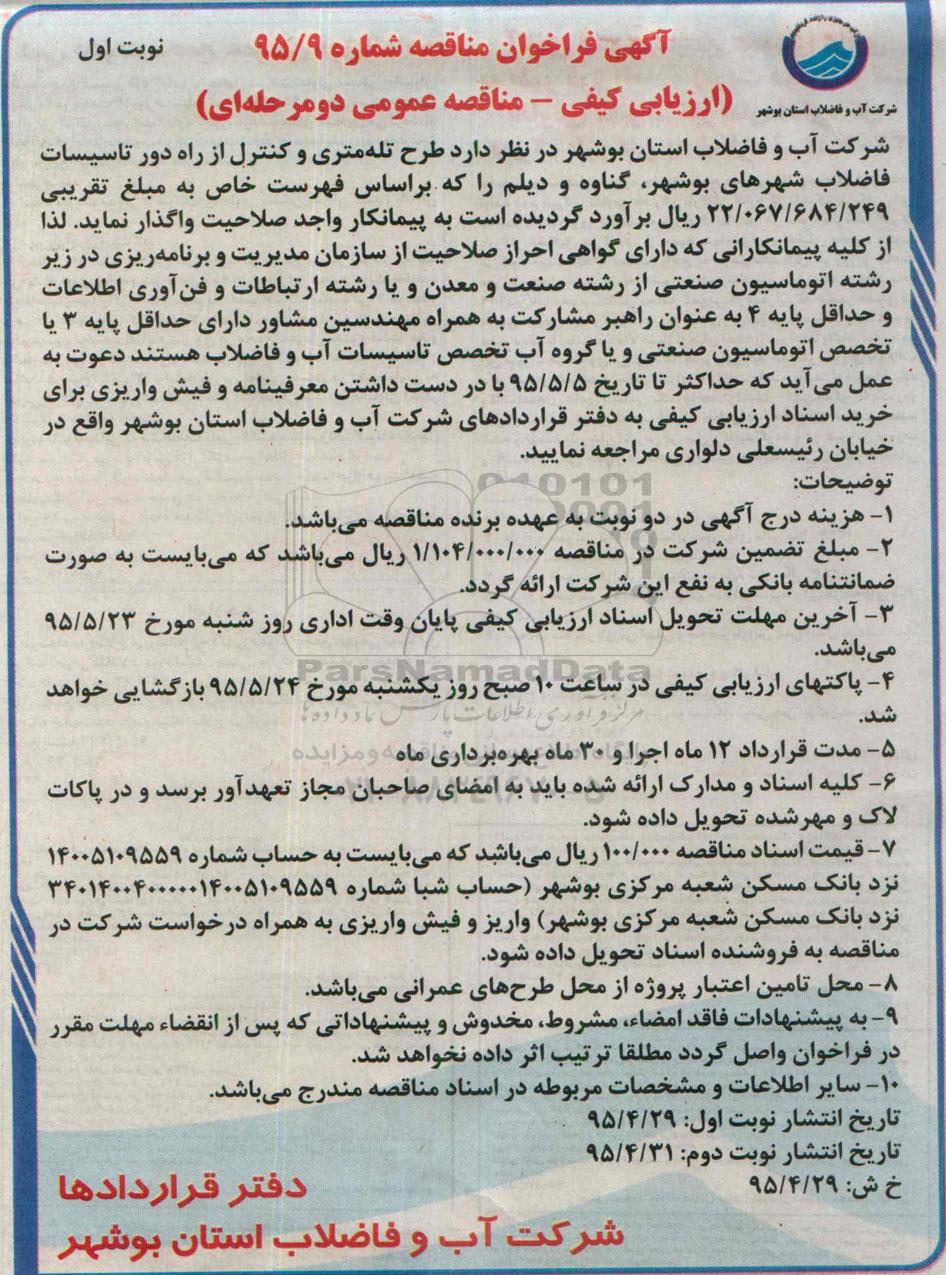 آگهی فراخوان مناقصه شماره ۹۵/۹
نوبت اول
(ارزیابی کیفی – مناقصه عمومی دومرحله‌ای)
شرکت آب و فاضلاب استان بوشهر
شرکت آب و فاضلاب استان بوشهر در نظر دارد طرح تله‌متری و کنترل از راه دور تاسیسات
فاضلاب شهرهای بوشهر، گناوه و دیلم را که براساس فهرست خاص به مبلغ تقریبی
۲۲/۰۶۷/۶۸۴/۲۴۹ ریال برآورد گردیده است به پیمانکار واجد صلاحیت واگذار نماید. لذا
از کلیه پیمانکارانی که دارای گواهی احراز صلاحیت از سازمان مدیریت و برنامه‌ریزی در زیر
رشته اتوماسیون صنعتی از رشته صنعت و معدن و یا رشته ارتباطات و فن‌آوری اطلاعات
و حداقل پایه ۴ به عنوان راهبر مشارکت به همراه مهندسین مشاور دارای حداقل پایه ۳ یا
تخصص اتوماسیون صنعتی و یا گروه آب تخصص تاسیسات آب و فاضلاب هستند دعوت به
عمل می‌آید که حداکثر تا تاریخ ۹۵/۵/۵ با در دست داشتن معرفینامه و فیش واریزی برای
خرید اسناد ارزیابی کیفی به دفتر قراردادهای شرکت آب و فاضلاب استان بوشهر واقع در
خیابان رئیسعلی دلواری مراجعه نمایید.
توضیحات:
۱- هزینه درج آگهی در دو نوبت به عهده برنده مناقصه می‌باشد.
۲- مبلغ تضمین شرکت در مناقصه ۱/۱۰۴/۰۰۰/۰۰۰ ریال می‌باشد که می‌بایست به صورت
ضمانتنامه بانکی به نفع این شرکت ارائه گردد.
۳- آخرین مهلت تحویل اسناد ارزیابی کیفی پایان وقت اداری روز شنبه مورخ ۹۵/۵/۲۳
می‌باشد.
ParsNamadData
۴- پاکتهای ارزیابی کیفی در ساعت ۱۰ صبح روز یکشنبه مورخ ۹۵/۵/۲۴ بازگشایی خواهد
شد.
۵- مدت قرارداد ۱۲ ماه اجرا و ۳۰ ماه بهره‌برداری ماه
۶- کلیه اسناد و مدارک ارائه شده باید به امضای صاحبان مجاز تعهدآور برسد و در پاکات
لاک و مهرشده تحویل داده شود.
۷- قیمت اسناد مناقصه ۱۰۰/۰۰۰ ریال می‌باشد که می‌بایست به حساب شماره ۱۴۰۰۵۱۰۹۵۵۹
نزد بانک مسکن شعبه مرکزی بوشهر (حساب شبا شماره ۳۴۰۱۴۰۰۴۰۰۰۰۰۱۴۰۰۵۱۰۹۵۵۹
نزد بانک مسکن شعبه مرکزی بوشهر) واریز و فیش واریزی به همراه درخواست شرکت در
مناقصه به فروشنده اسناد تحویل داده شود.
۸- محل تامین اعتبار پروژه از محل طرح‌های عمرانی می‌باشد.
۹- به پیشنهادات فاقد امضاء، مشروط، مخدوش و پیشنهاداتی که پس از انقضاء مهلت مقرر
در فراخوان واصل گردد مطلقا ترتیب اثر داده نخواهد شد.
۱۰- سایر اطلاعات و مشخصات مربوطه در اسناد مناقصه مندرج می‌باشد.
تاریخ انتشار نوبت اول: ۹۵/۴/۲۹
تاریخ انتشار نوبت دوم: ۹۵/۴/۳۱
خ ش: ۹۵/۴/۲۹
دفتر قراردادها
شرکت آب و فاضلاب استان بوشهر